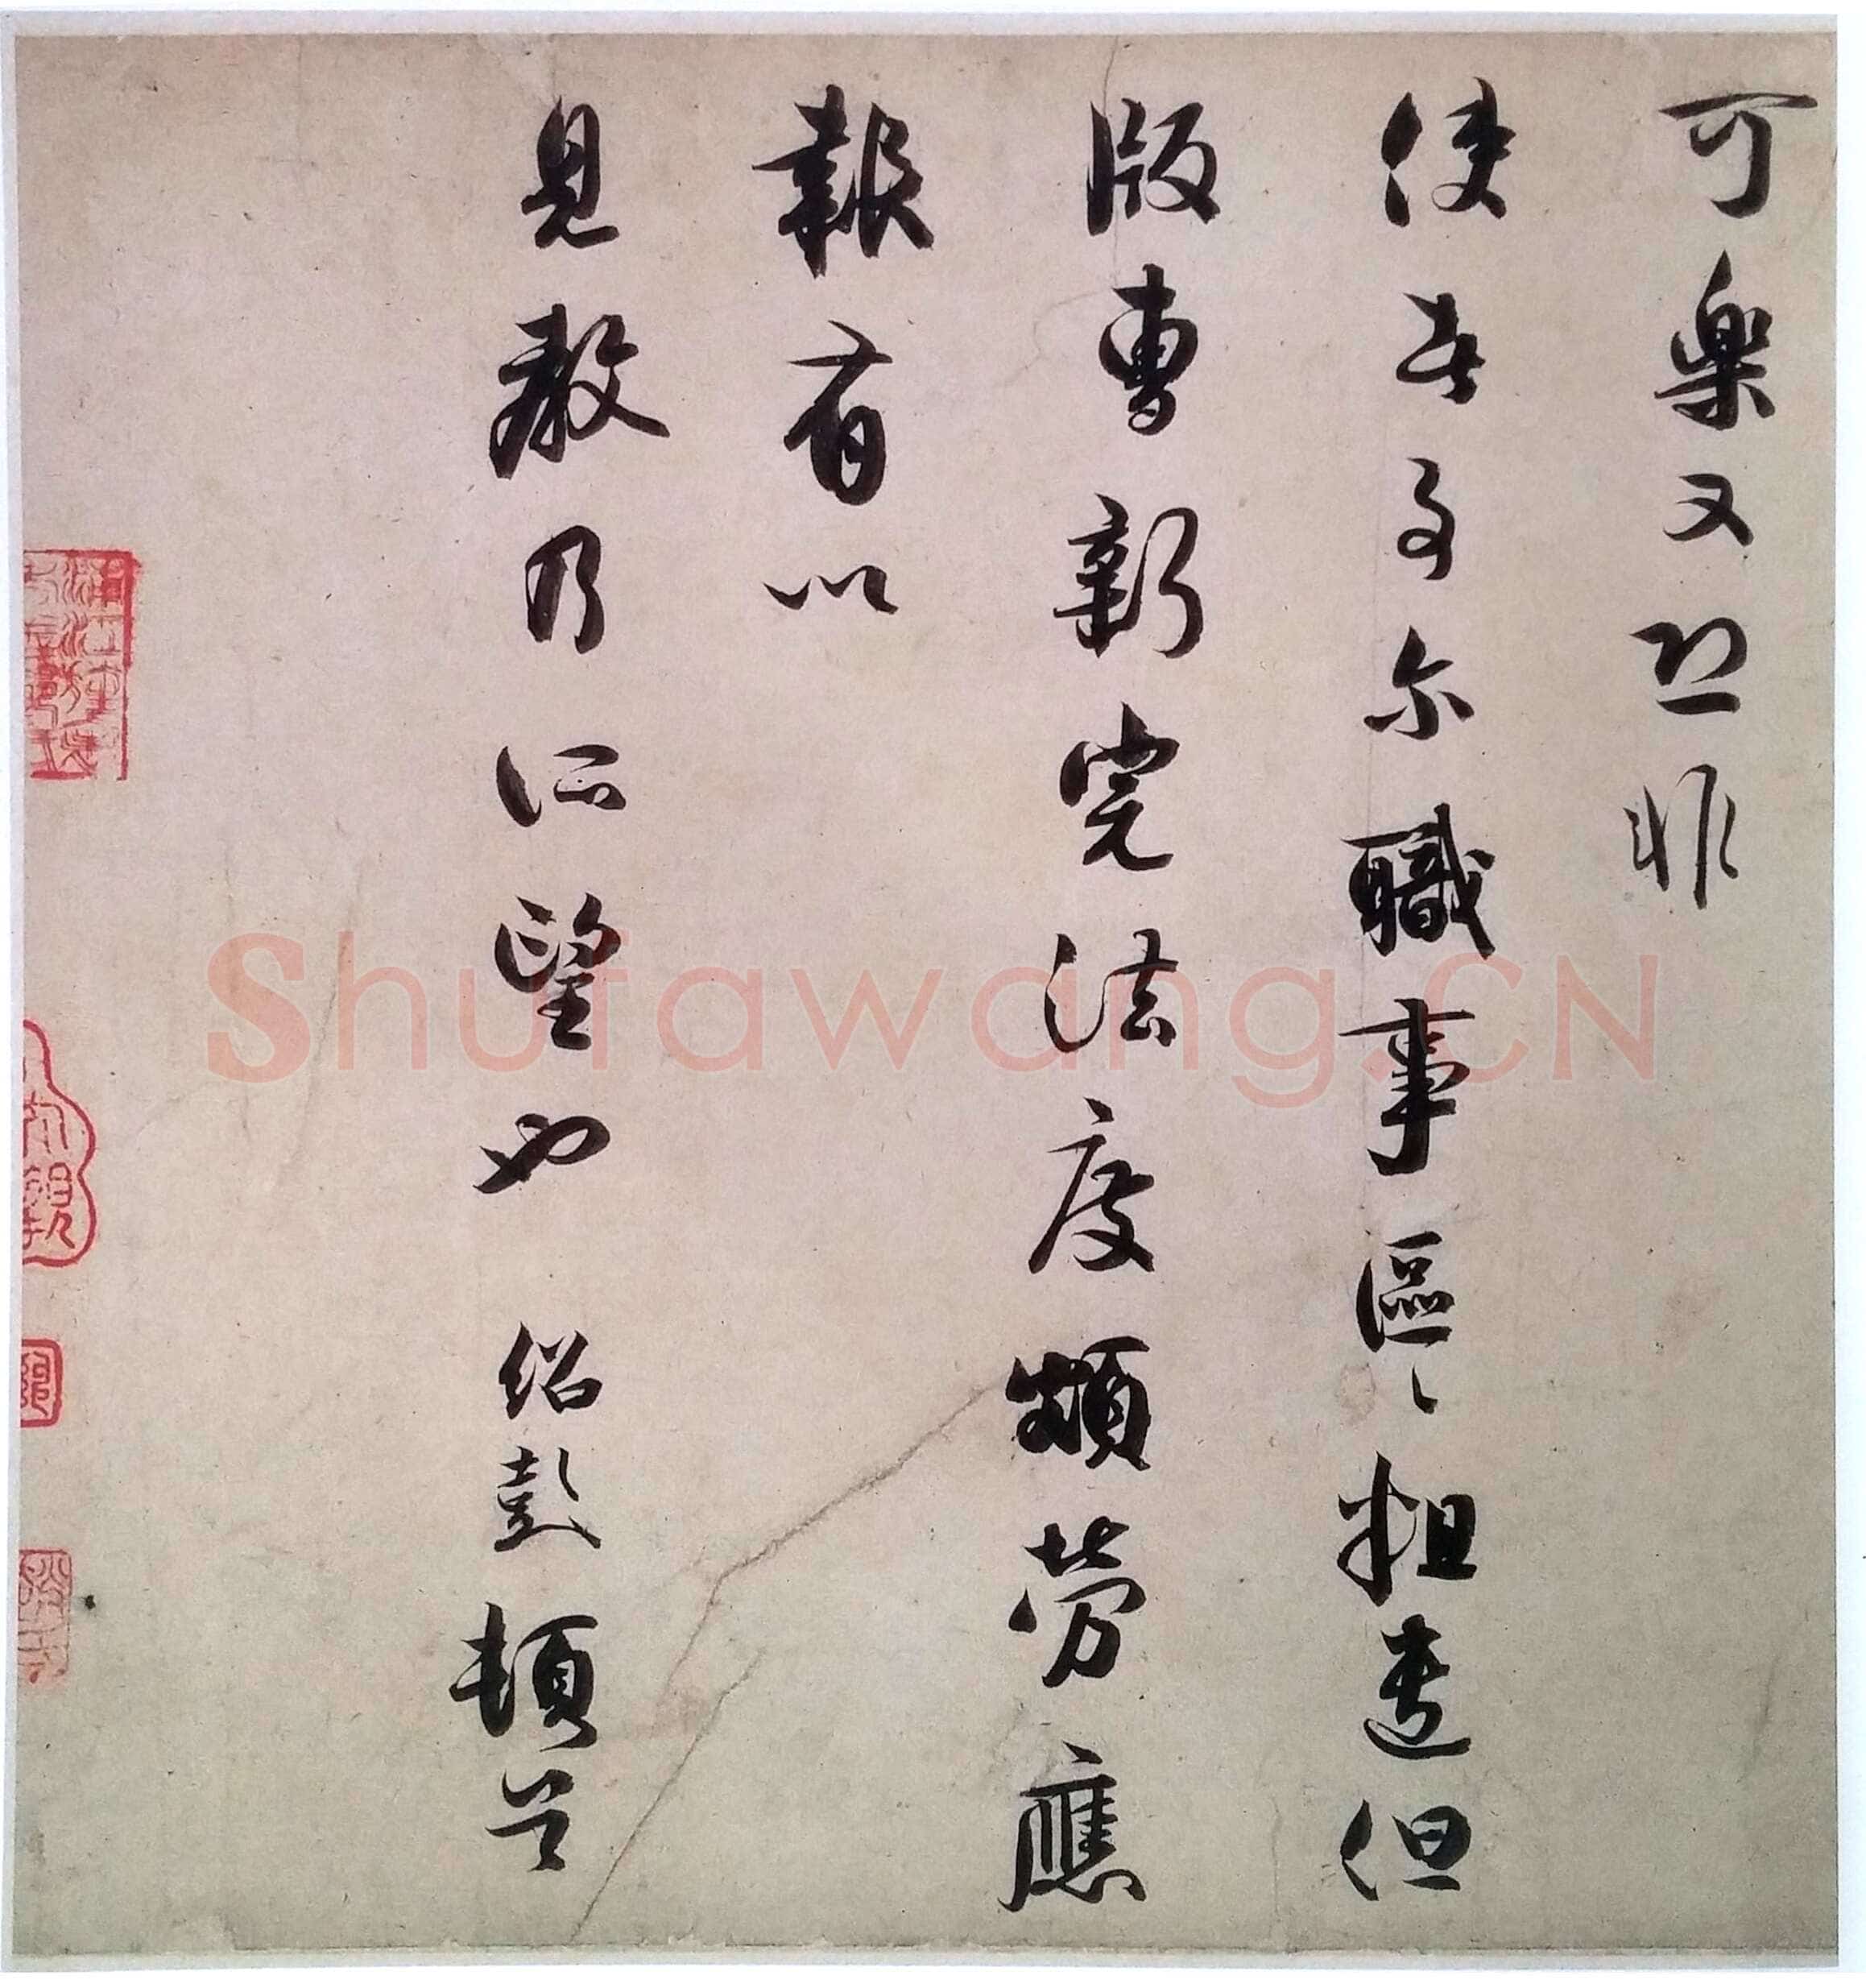 可樂又恐非
使者事尔職事區〻粗遣但
版曹新法度勞應
報有以
見教乃所望也 紹彭頓首
Shufawang.CN